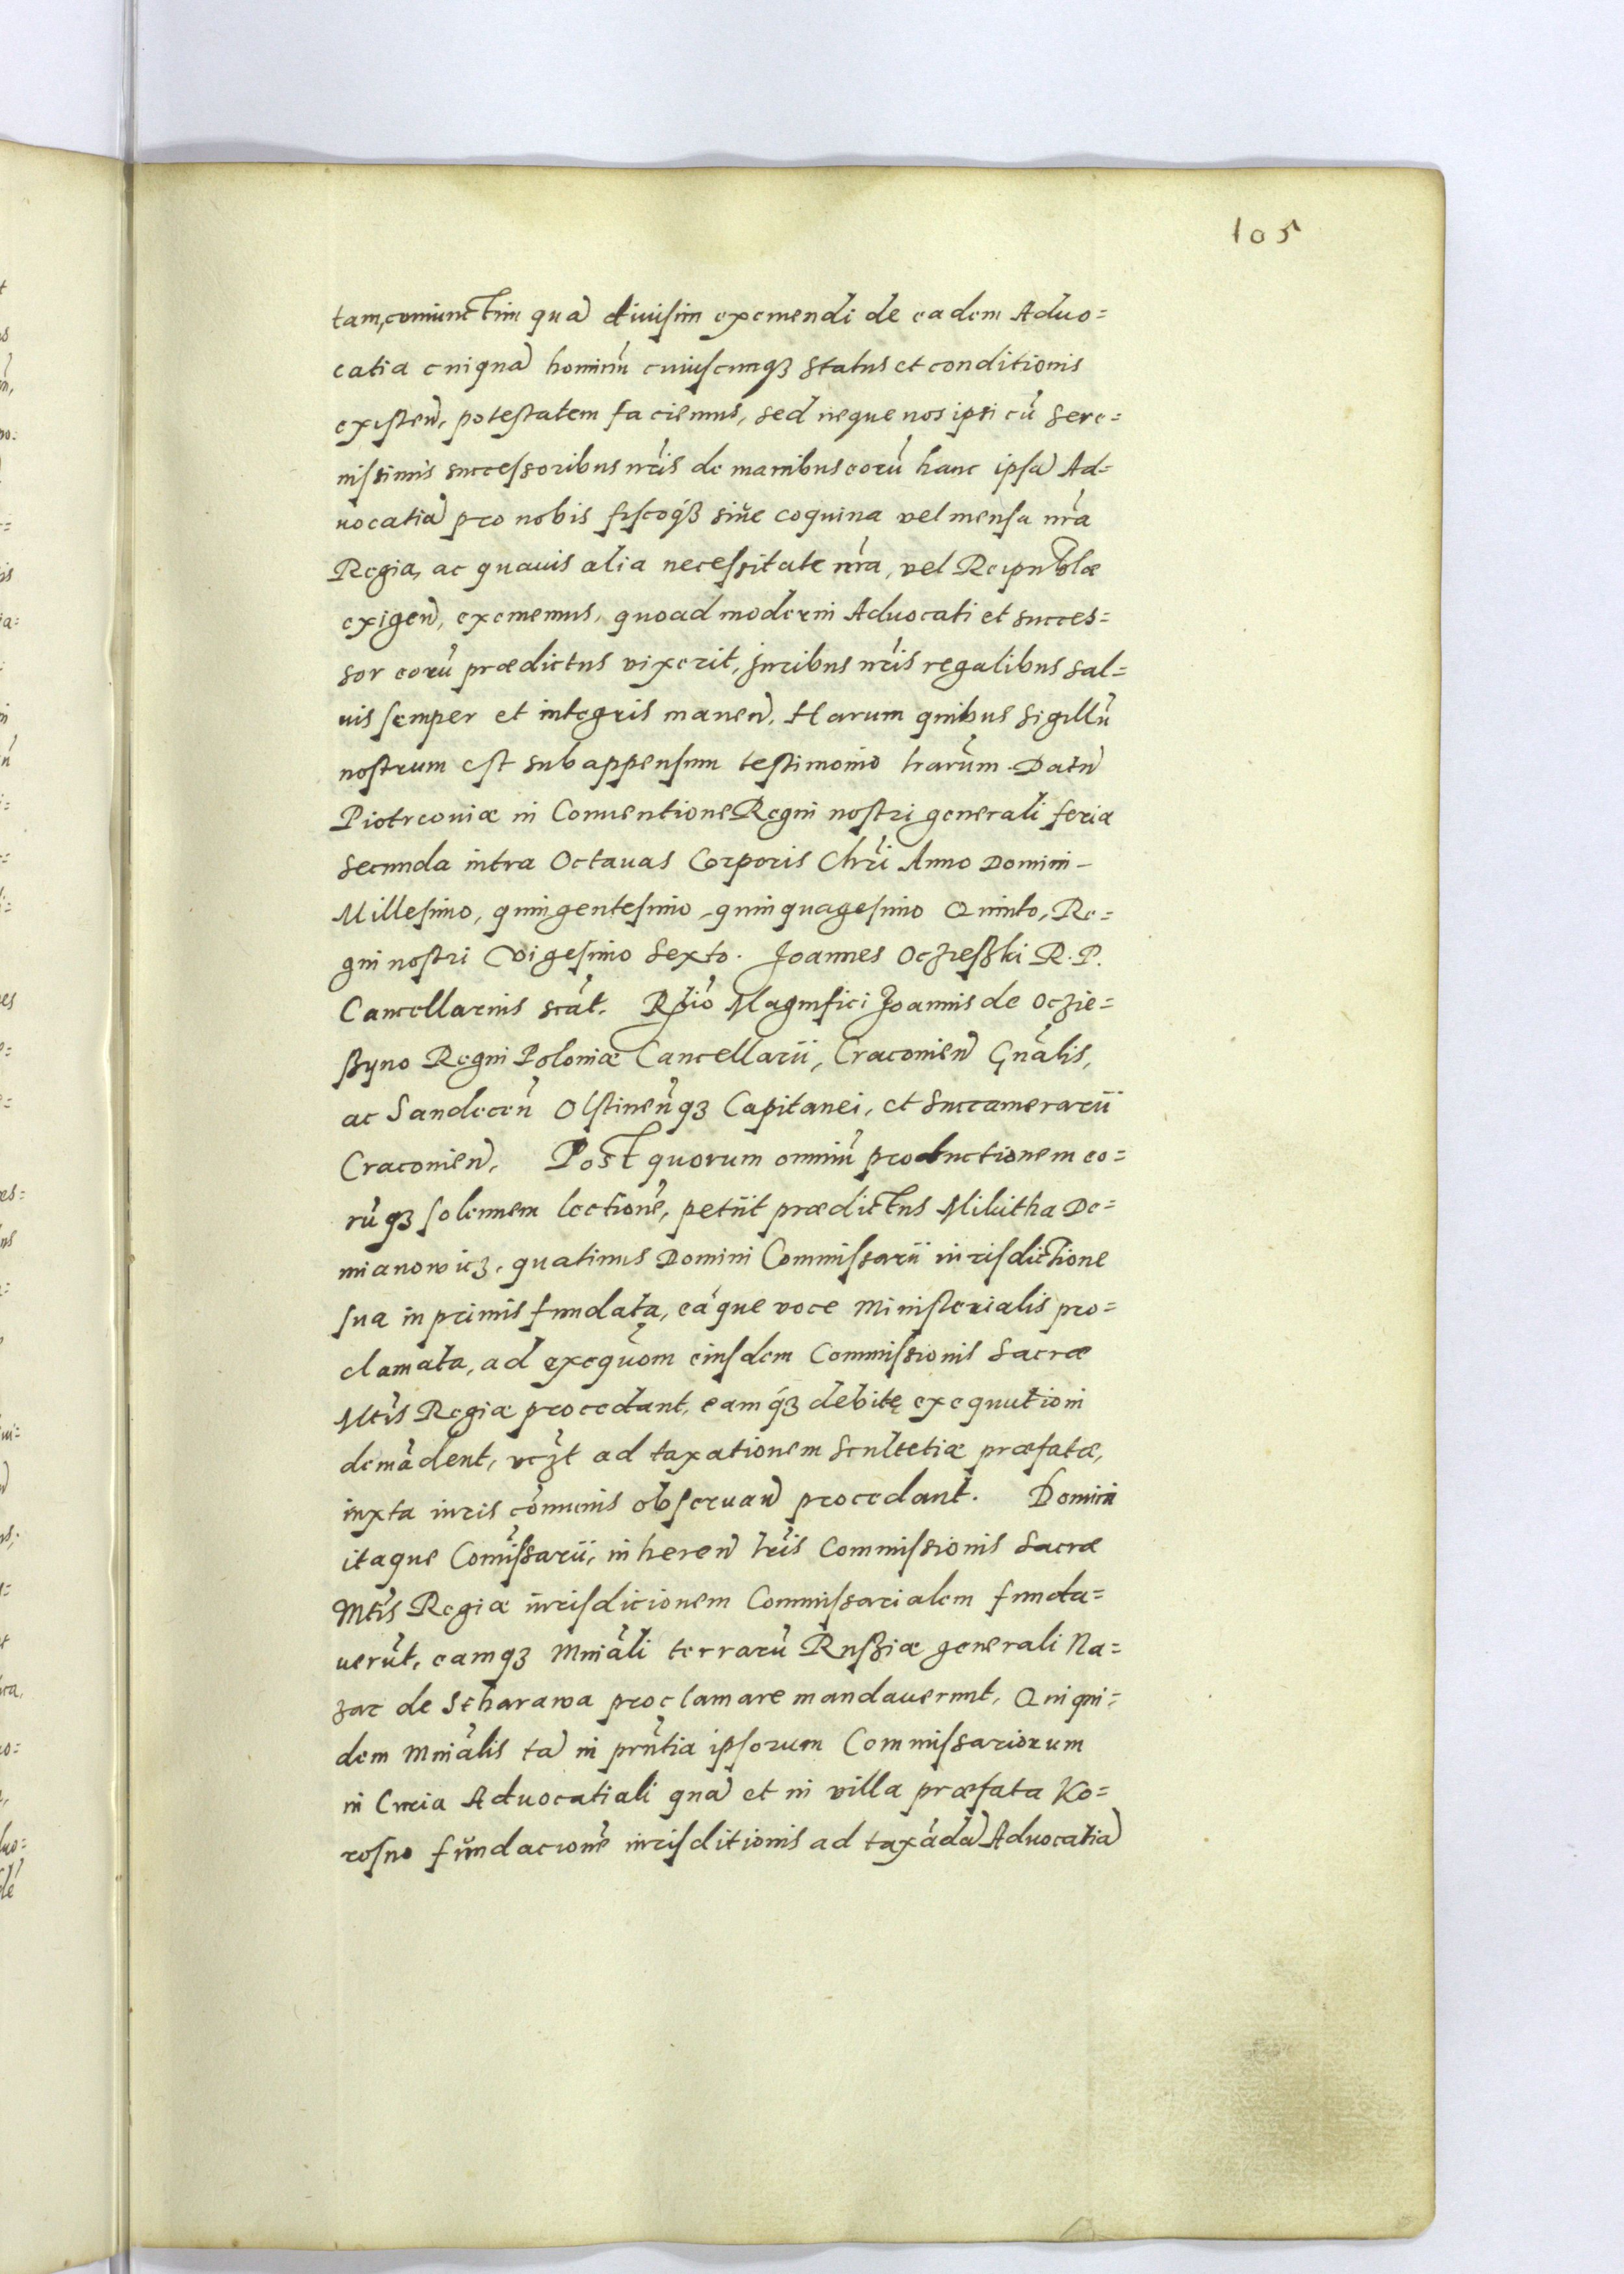 105
tam, coniunctim quā diuisim exemendi de eadem Aduo=
catia cuiquā hominū cuiuscunqꝫ status et conditionis
existen̄, potestatem faciemus, sed neque nos ipsi cū Sere=
nissimis successoribus nr̄is de manibus eorū hanc ipsā Ad=
uocatiā pro nobis fiscoqꝫ siue coquina vel mensa nr̄a
Regia, ac quauis alia necessitate nr̄a, vel Reipublæ
exigen̄, exememus, quoad moderni Aduocati et succes=
sor eorū prædictus vixerit, Juribus nr̄is regalibus sal=
uis semper et integris manen̄. Harum quibus Sigillū
nostrum est subappensum testimonio lr̄arum. Datū
Piotrcouiæ in Conuentione Regni nostri generali feria
secunda intra Octauas Corporis Chr̄i Anno Domini –
Millesimo, quingentesimo, quinquagesimo Quinto, Re=
gni nostri Vigesimo Sexto. Joannes Oczieski R. P.
Cancellarius sc̄at. R̄lio Magnifici Joannis de Oczie=
ßyno Regni Poloniæ Cancellarii, Cracouien̄ Gn̄alis,
ac Sandecen̄ Olstinen̄qꝫ Capitanei, et Succamerarii
Cracouien̄. Post quorum omniū productionem eo=
rūqꝫ solennem lectionē, petiit prædictus Mikitha De=
mianowicz, quatinus Domini Commissarii iurisdictione
sua in primis fundata, eáque voce Ministerialis pro=
clamata, ad exequōm eiusdem Commissionis Sacræ
Mt̄is Regiæ procedant, eamqꝫ debitę exequutioni
demādent, vcz̄t ad taxationem Scultetiæ præfatæ,
iuxta iuris cōmunis obseruan̄ procedant. Domini
itaque Comissarii, inheren̄ lr̄is Commissionis Sacræ
Mt̄is Regiæ iurisdicionem Commissarialem funda=
uerūt, eamqꝫ Mniāli terrarū Rusziæ generali Na=
zar de Scharawa proclamare mandauerunt, Qui qui=
dem Mniālis tā in prn̄tia ipsorum Commissariorum
in Curia Aduocatiali quā et in villa præfata Ko=
rosno fundacionē iurisditionis ad taxādā Aduocatiā